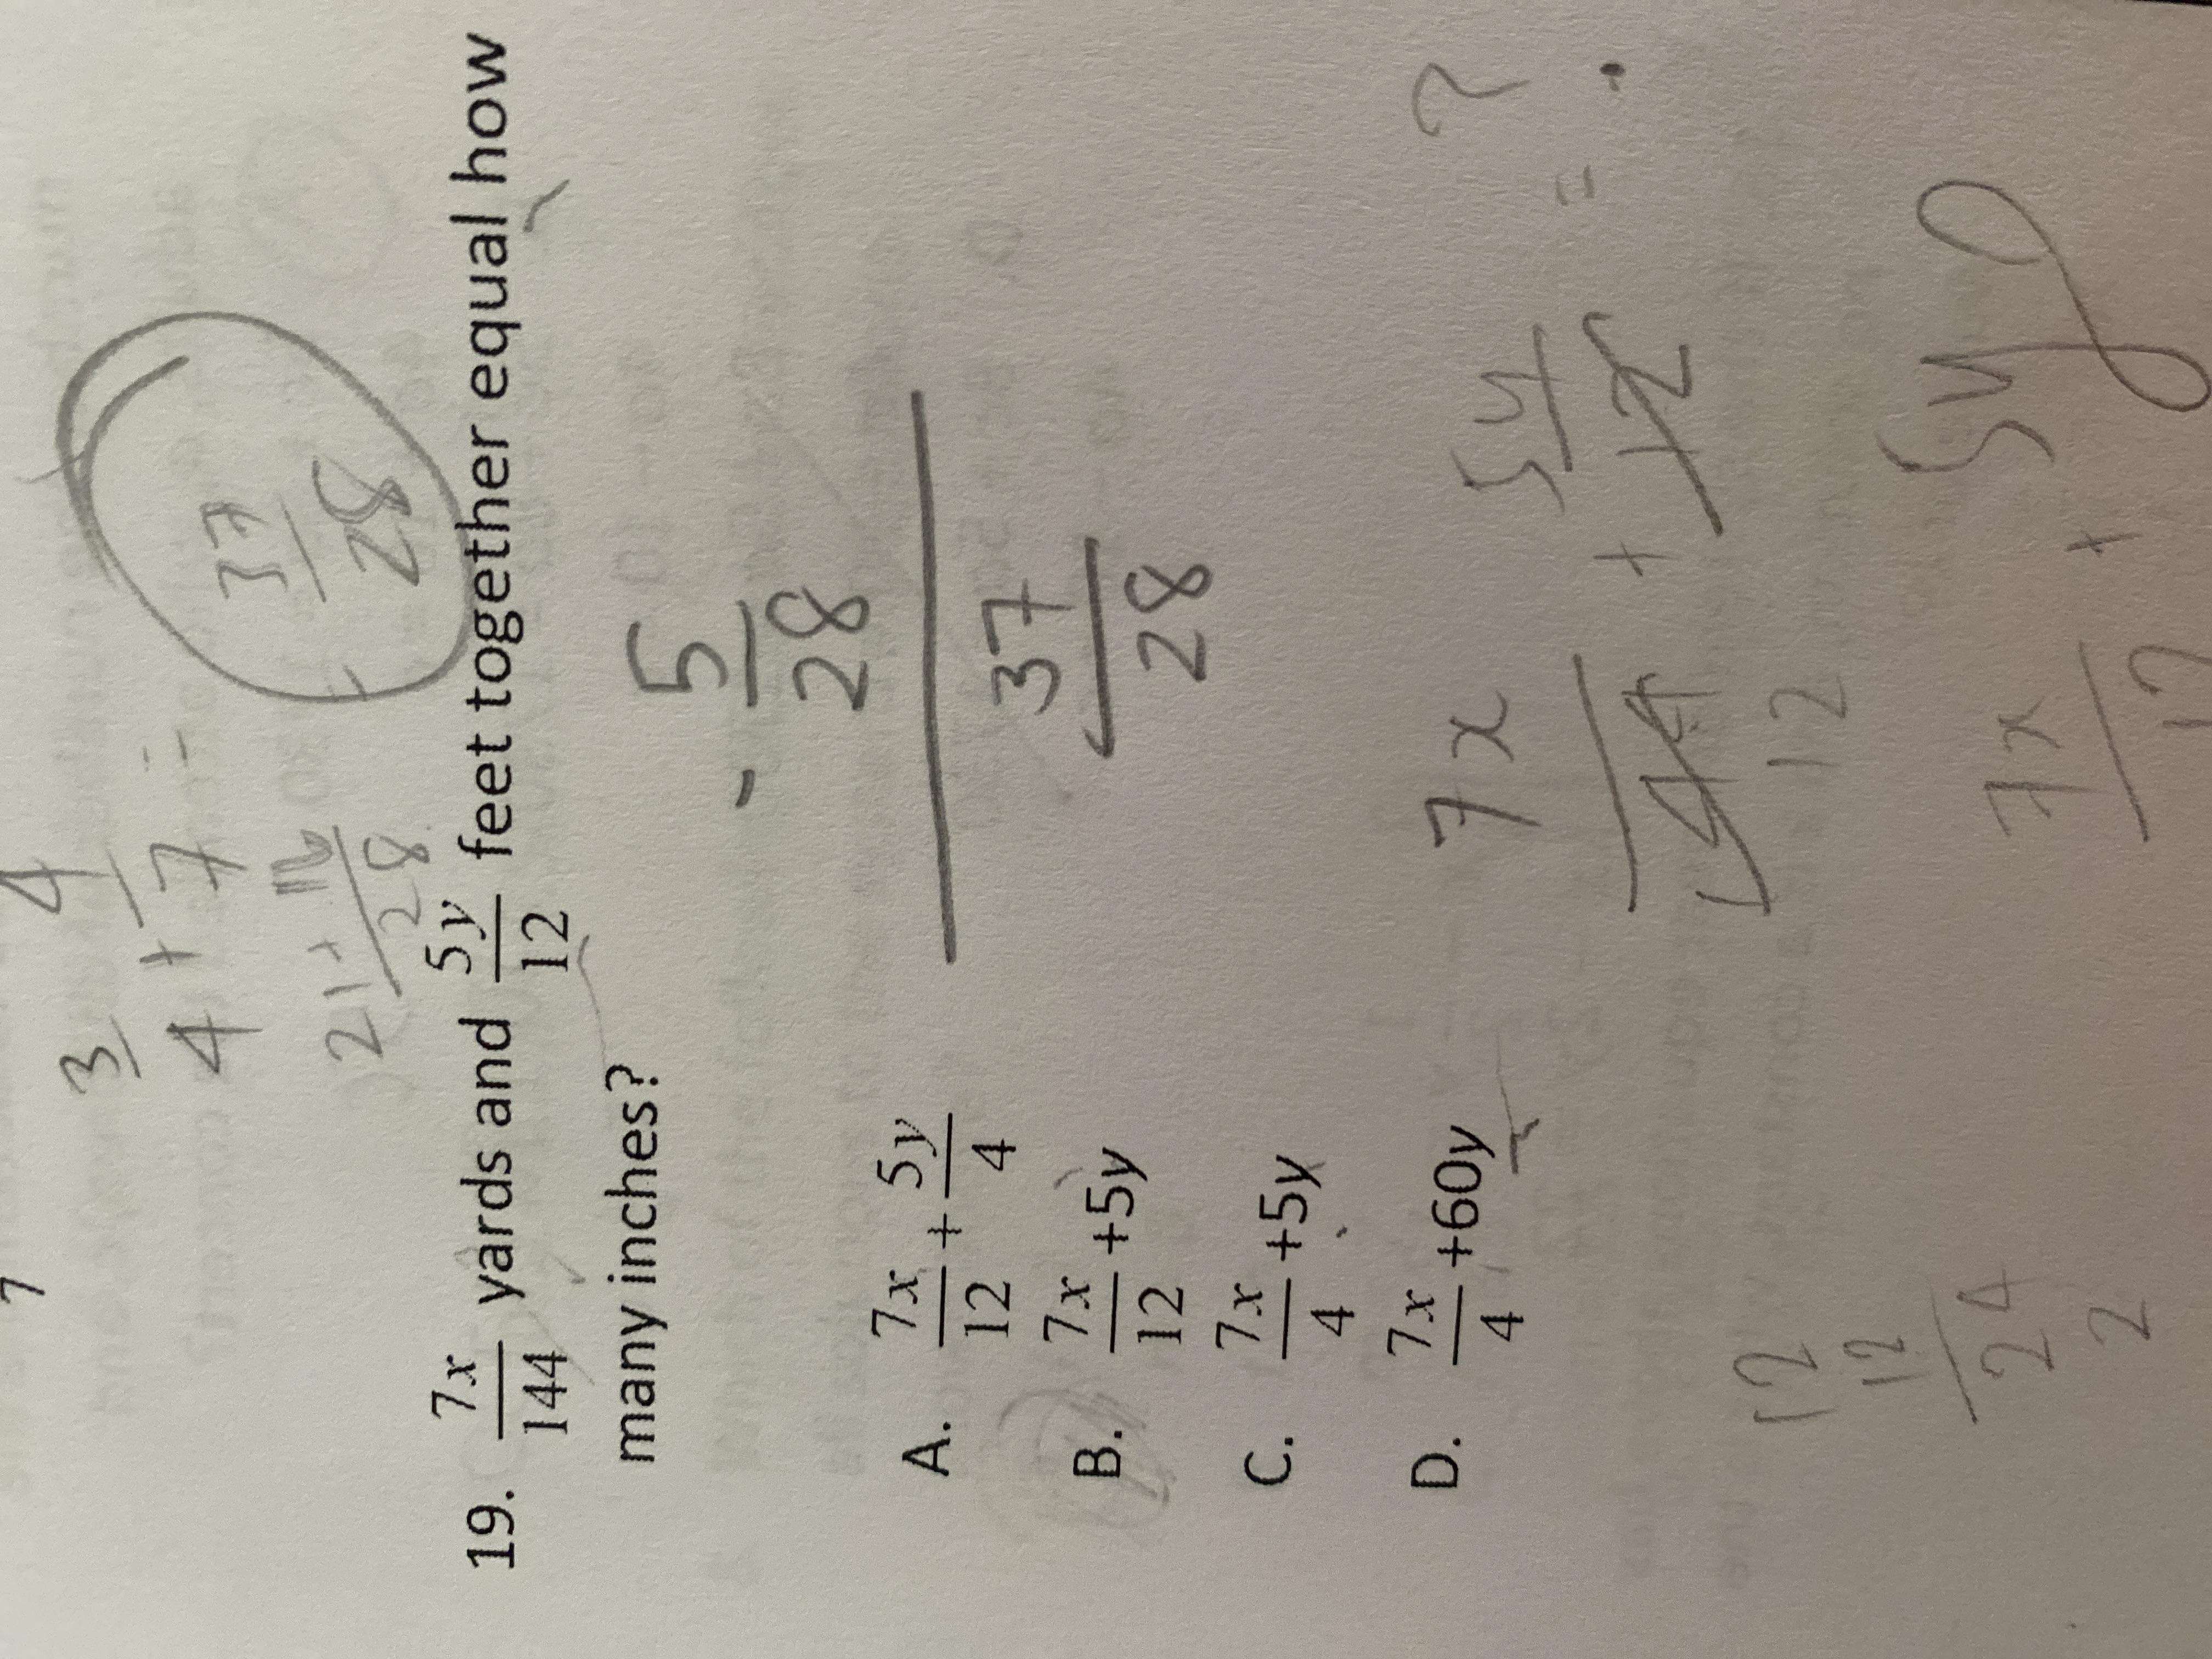 3/4 + 4/7 =
21+16/28
37/28
19. 7x/144 yards and 5y/12 feet together equal how
many inches?
- 5/28
37/28
A. 7x/12 + 5y/4
B. 7x/12 +5y
C. 7x/4 +5y
D. 7x/4 +60y
7x/144 + 5y/12 = ?
12
7x/12 + 5y
12
12
24
2